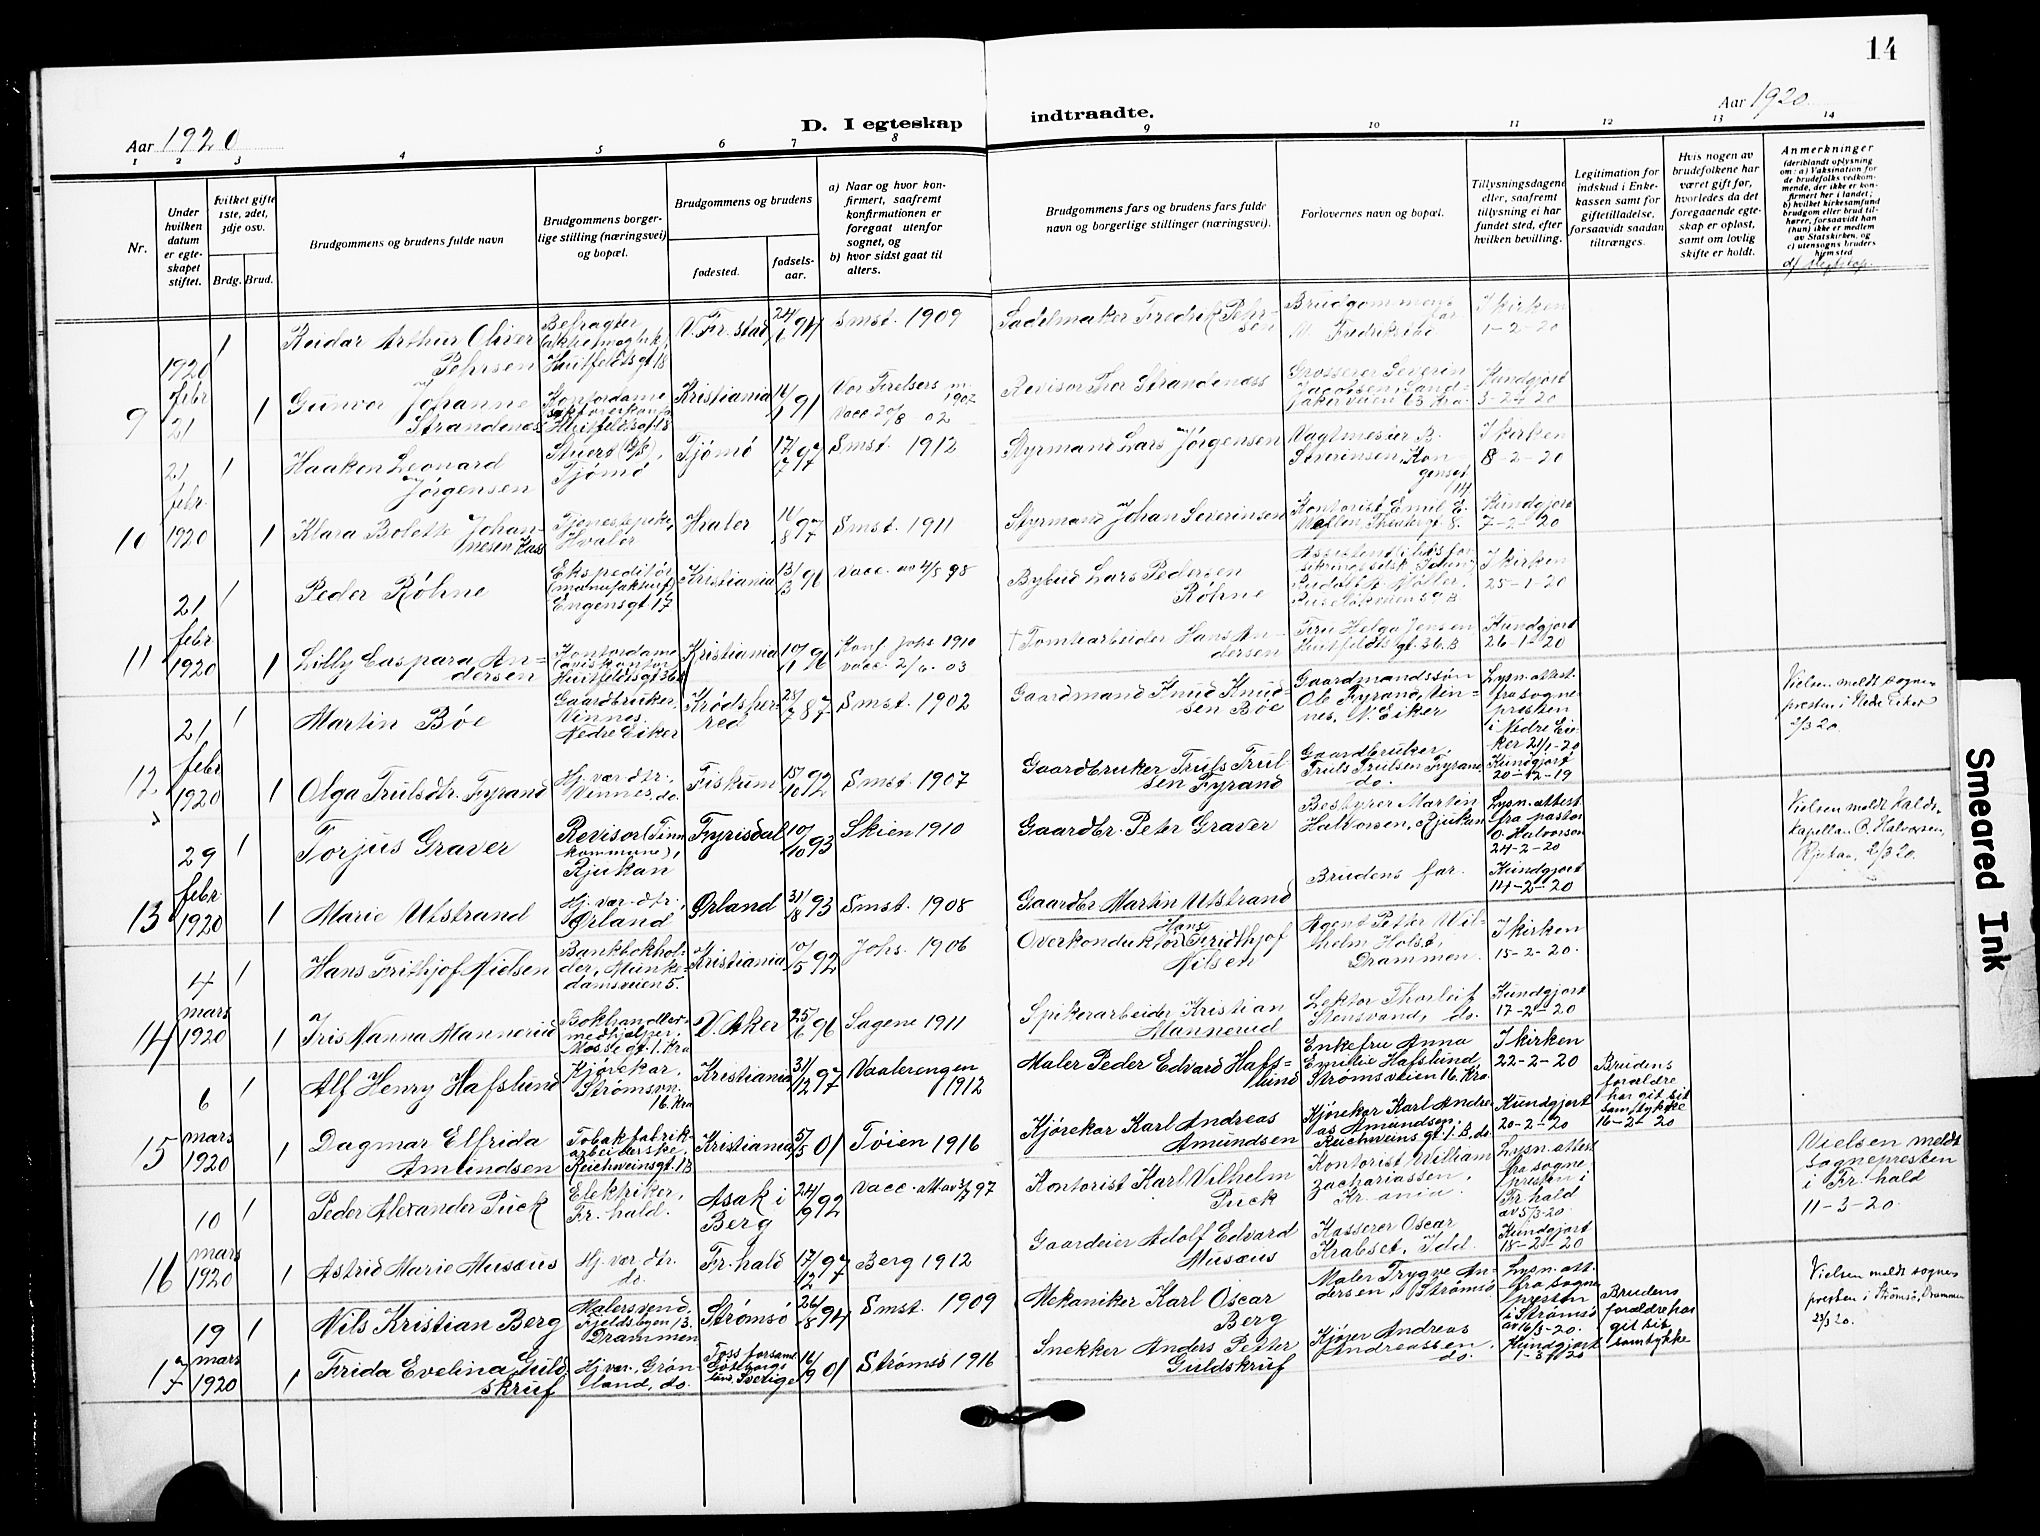 14
Aar 1920
D. I egteskap indtraadte.
Aar 1920
1 2 3 4 5 6 7 8 9 10 11 12 13 14
Nr.
Under
hvilken
datum
er egte-
skapet
stiftet.
Hvilket gifte
1ste, 2det,
3dje osv.
Brdg. Brud.
Brudgommens og brudens fulde navn
Brudgommens borger-
lige stilling (næringsvei)
og bopæl.
Brudgommens og brudens
fødested.
fødsels-
aar.
a) Naar og hvor kon-
firmert, saafremt
konfirmationen er
foregaat utenfor
sognet, og
b) hvor sidst gaat til
alters.
Brudgommens fars og brudens fars fulde
navn og borgerlige stillinger (næringsvei).
Forlovernes navn og bopæl.
Tillysningsdagene
eller, saafremt
tillysning ei har
fundet sted, efter
hvilken bevilling.
Legitimation for
indskud i Enke-
kassen samt for
giftetilladelse,
forsaavidt saadan
tiltrænges.
Hvis nogen av
brudefolkene har
været gift før,
hvorledes da det
foregaaende egte-
skap er opløst,
samt om lovlig
skifte er holdt.
Anmerkninger
(deriblandt oplysning
om: a) Vaksination for
de brudefolks vedkom-
mende, der ikke er kon-
firmert her i landet;
b) hvilket kirkesamfund
brudgom eller brud til-
hører, forsaavidt han
(hun) ikke er medlem
av Statskirken, og
c) utensogns bruders
hjemsted
d) slegtskap.
9
21
febr
1920
1
Reidar Arthur Oliver
Pehrsen
Befragter
Huitfeldtsgt 18
V. Fr. stad
24/6 94
Smst. 1909
Sadelmaker Fredrik Pehr-
sen
Brudgommens
far
Fredrikstad
I kirken
1-2-20
1
Gunvor Johanne
Strandenæs
Kontordame
Huitfeldtsgt 18
Kristiania
14/1 91
Vor Frelsers m.
1907
vacc 20/8 02
Revisor Thor Strandenæss
Grosserer Severin
Jacobsen, Sand-
akerveien 63 Kra.
Kundgjort
3-2-20
10
21
febr.
1920
1
Haakon Leonard
Jørgensen
Stuert (D/S),
Tjømø
Tjømø
17/7 97
Smst. 1912
Styrmand Lars Jørgensen
Vagtmester B.
Severinsen, Kon-
gensgt.
14
I kirken
8-2-20
1
Klara Bolette Johan-
nesen Kass
Tjenestepike,
Hvaler
Hvaler
11/8 97
Smst. 1911
Styrmand Johan Severinsen
Kontorist Emil E.
Møllen, Theresesgt. 8.
Kundgjort
7-2-20
11
21
febr
1920
1
Peder Røhne
Ekspeditør
(manufaktur)
Engensgt. 17
Kristiania
13/3 96
vacc. av 4/5 98
Bybud Lars Pedersen
Røhne
I kirken
25-1-20
1
Lilly Caspara An-
dersen
Kontordame
(aviskontor)
Huitfeldtsgt 36 B
Kristiania
10/11 96
Konf. Johs 1910
vacc. 2/6 03
† Tomtearbeider Hans An-
dersen
Fru Helga Jensen
Huitfeldts gt. 36. B
Kundgjort
26-1-20
12
21
febr
1920
1
Martin Bøe
Gaardbruker,
Vinnes,
Nedre Eiker
Krødsher-
red
28/7 87
Smst. 1902
Gaardmand Knud Knud-
sen Bøe
Gaardmandssøn
Ole Fyrand, Vin-
nes, N. Eiker
Lysn. attest
fra sogne
presten
i Nedre Ei-
ker 21/1-20
Vielsen meldt sogne-
presten i Nedre Eiker
2/3 20.
1
Olga Trulsdtr. Fyrand
Hj. vær. dtr.,
Vinnes, do.
Fiskum
15/10 92
Smst. 1907
Gaardbruker Truls Trul-
sen Fyrand
Gaardbruker
Truls Trulsen Fyrand,
do.
Kundgjort
20-12-19
13
29
febr.
1920
1
Torjus Graver
Revisor (Tinn
kommune),
Rjukan
Fyrisdal
10/10 93
Skien 1910
Gaardbr. Peter Graver
Bestyrer Martin
Halvorsen, Rjukan
Lysn. attest.
fra pastor
O. Halvorsen
24-2-20
Vielsen meldt kald-
kapellan O. Halvorsen,
Rjukan, 2/3 20.
1
Marie Utstrand
Hj. vær. dtr.,
Ørland
Ørland
31/8 93
Smst. 1908
Gaardbr Martin Utstrand
Brudens far.
Kundgjort
14-2-20
14
4
mars
1920
1
Hans Frithjof Nielsen
Bankbokhol-
der, Munke-
damsveien 5.
Kristiania
10/5 92
Johs. 1906
Overkonduktør Hans Fridthjof
Nilsen
Agent Peter Wil-
helm Holst,
Drammen.
I kirken
15-2-20.
1
Iris Nanna Mannerud
Bokhandler-
medhjelper,
Mosse gt. 1. Kra
V. Aker
25/6 96
Sagene 1911
Spikerarbeider Kristian
Mannerud
Lektor Thorleif
Stensvand, do.
Kundgjort
17-2-20
15
6
mars
1920
1
Alf Henry Hafslund
Kjørekar,
Strømsvn.
16. Kra
Kristiania
31/12 97
Vaalerengen
1912
Maler Peder Edvard Hafs-
lund
Enkefru Anna
Emilie Hafslund
Strømsveien 16. Kra.
I kirken
22-2-20
Brudens
forældre
har git sit
samtykke
16-2-20
1
Dagmar Elfrida
Amundsen
Tobakfabrik-
arbeiderske,
Reichweinsgt. 1 B
Kristiania
5/5 01
Tøien 1916
Kjørekar Karl Andreas
Amundsen
Kjørekar Karl Andre-
as Amundsen,
Reichweins gt. 1. B, do.
Kundgjort
20-2-20
16
10
mars
1920
1
Peder Alexander Puck
Elektriker,
Fr. hald.
Asak i
Berg
24/9 92
Kontorist Karl Vilhelm
Puck
Kontorist William
Zachariassen,
Kr. ania.
Lysn. attest
fra sogne-
presten i
Fr. hald
av 5/3-20.
Vielsen meldt
sognepresten
i Fr. hald
11-3-20.
1
Astrid Marie Musæus
Hj. vær. dtr.
do.
Fr. hald
17/12 97
Berg 1912
Gaardeier Adolf Edvard
Musæus
Kasserer Oscar
Krabset, Idd.
Kundgjort
18-2-20
17
19
mars
1920
1
Nils Kristian Berg
Malersvend,
Fjeldsbyen 13.
Drammen
Strømsø
26/8 94
Smst. 1909
Mekaniker Karl Oscar
Berg
Maler Trygve An-
dersen, Strømsø
Lysn. att.
fra sogne
presten
i Strømsø
av 16/3-20.
Brudens
forældre har
git sit
samtykke
Vielsen meldt sogne-
presten i Strømsø, Drammen
23/3 20.
1
Frida Evelina Guld-
skruf
Hj. vær. Grøn-
land, do.
Foss forsaml.
Gøteborgs
län, Sverige
16/9 01
Strømsø 1916
Snekker Anders Petter
Guldskruf
Kjører Andreas
Andreassen,
do.
Kundgjort
1-3-20
Smeared Ink